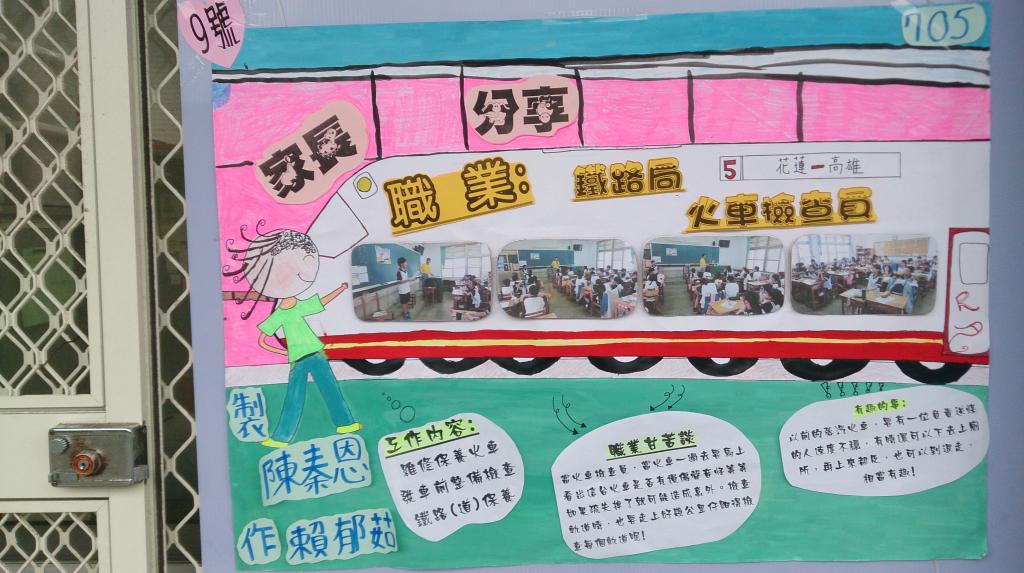 9號
705
家長
分享
職業:
鐵路局
火車檢查員
5 花蓮－高雄
製衣
陳秦恩
作 賴郁茹
工作內容:
維修保養火車
發車前整備檢查
鐵路(道)保養
職業甘苦談
當火車檢查員,當火車一開去要馬上
看出這台火車是否有
如果疏失掉了就可能造成意外。檢查
軌道時,也要走上好幾公里仔細得檢
查每個軌道呢!
有趣的事:
以前的蒸汽火車,要有一位負責送煤
的人速度不穩,有時還可以下去上廁
所,再上來都还,也可以到邊走,
相當有趣!